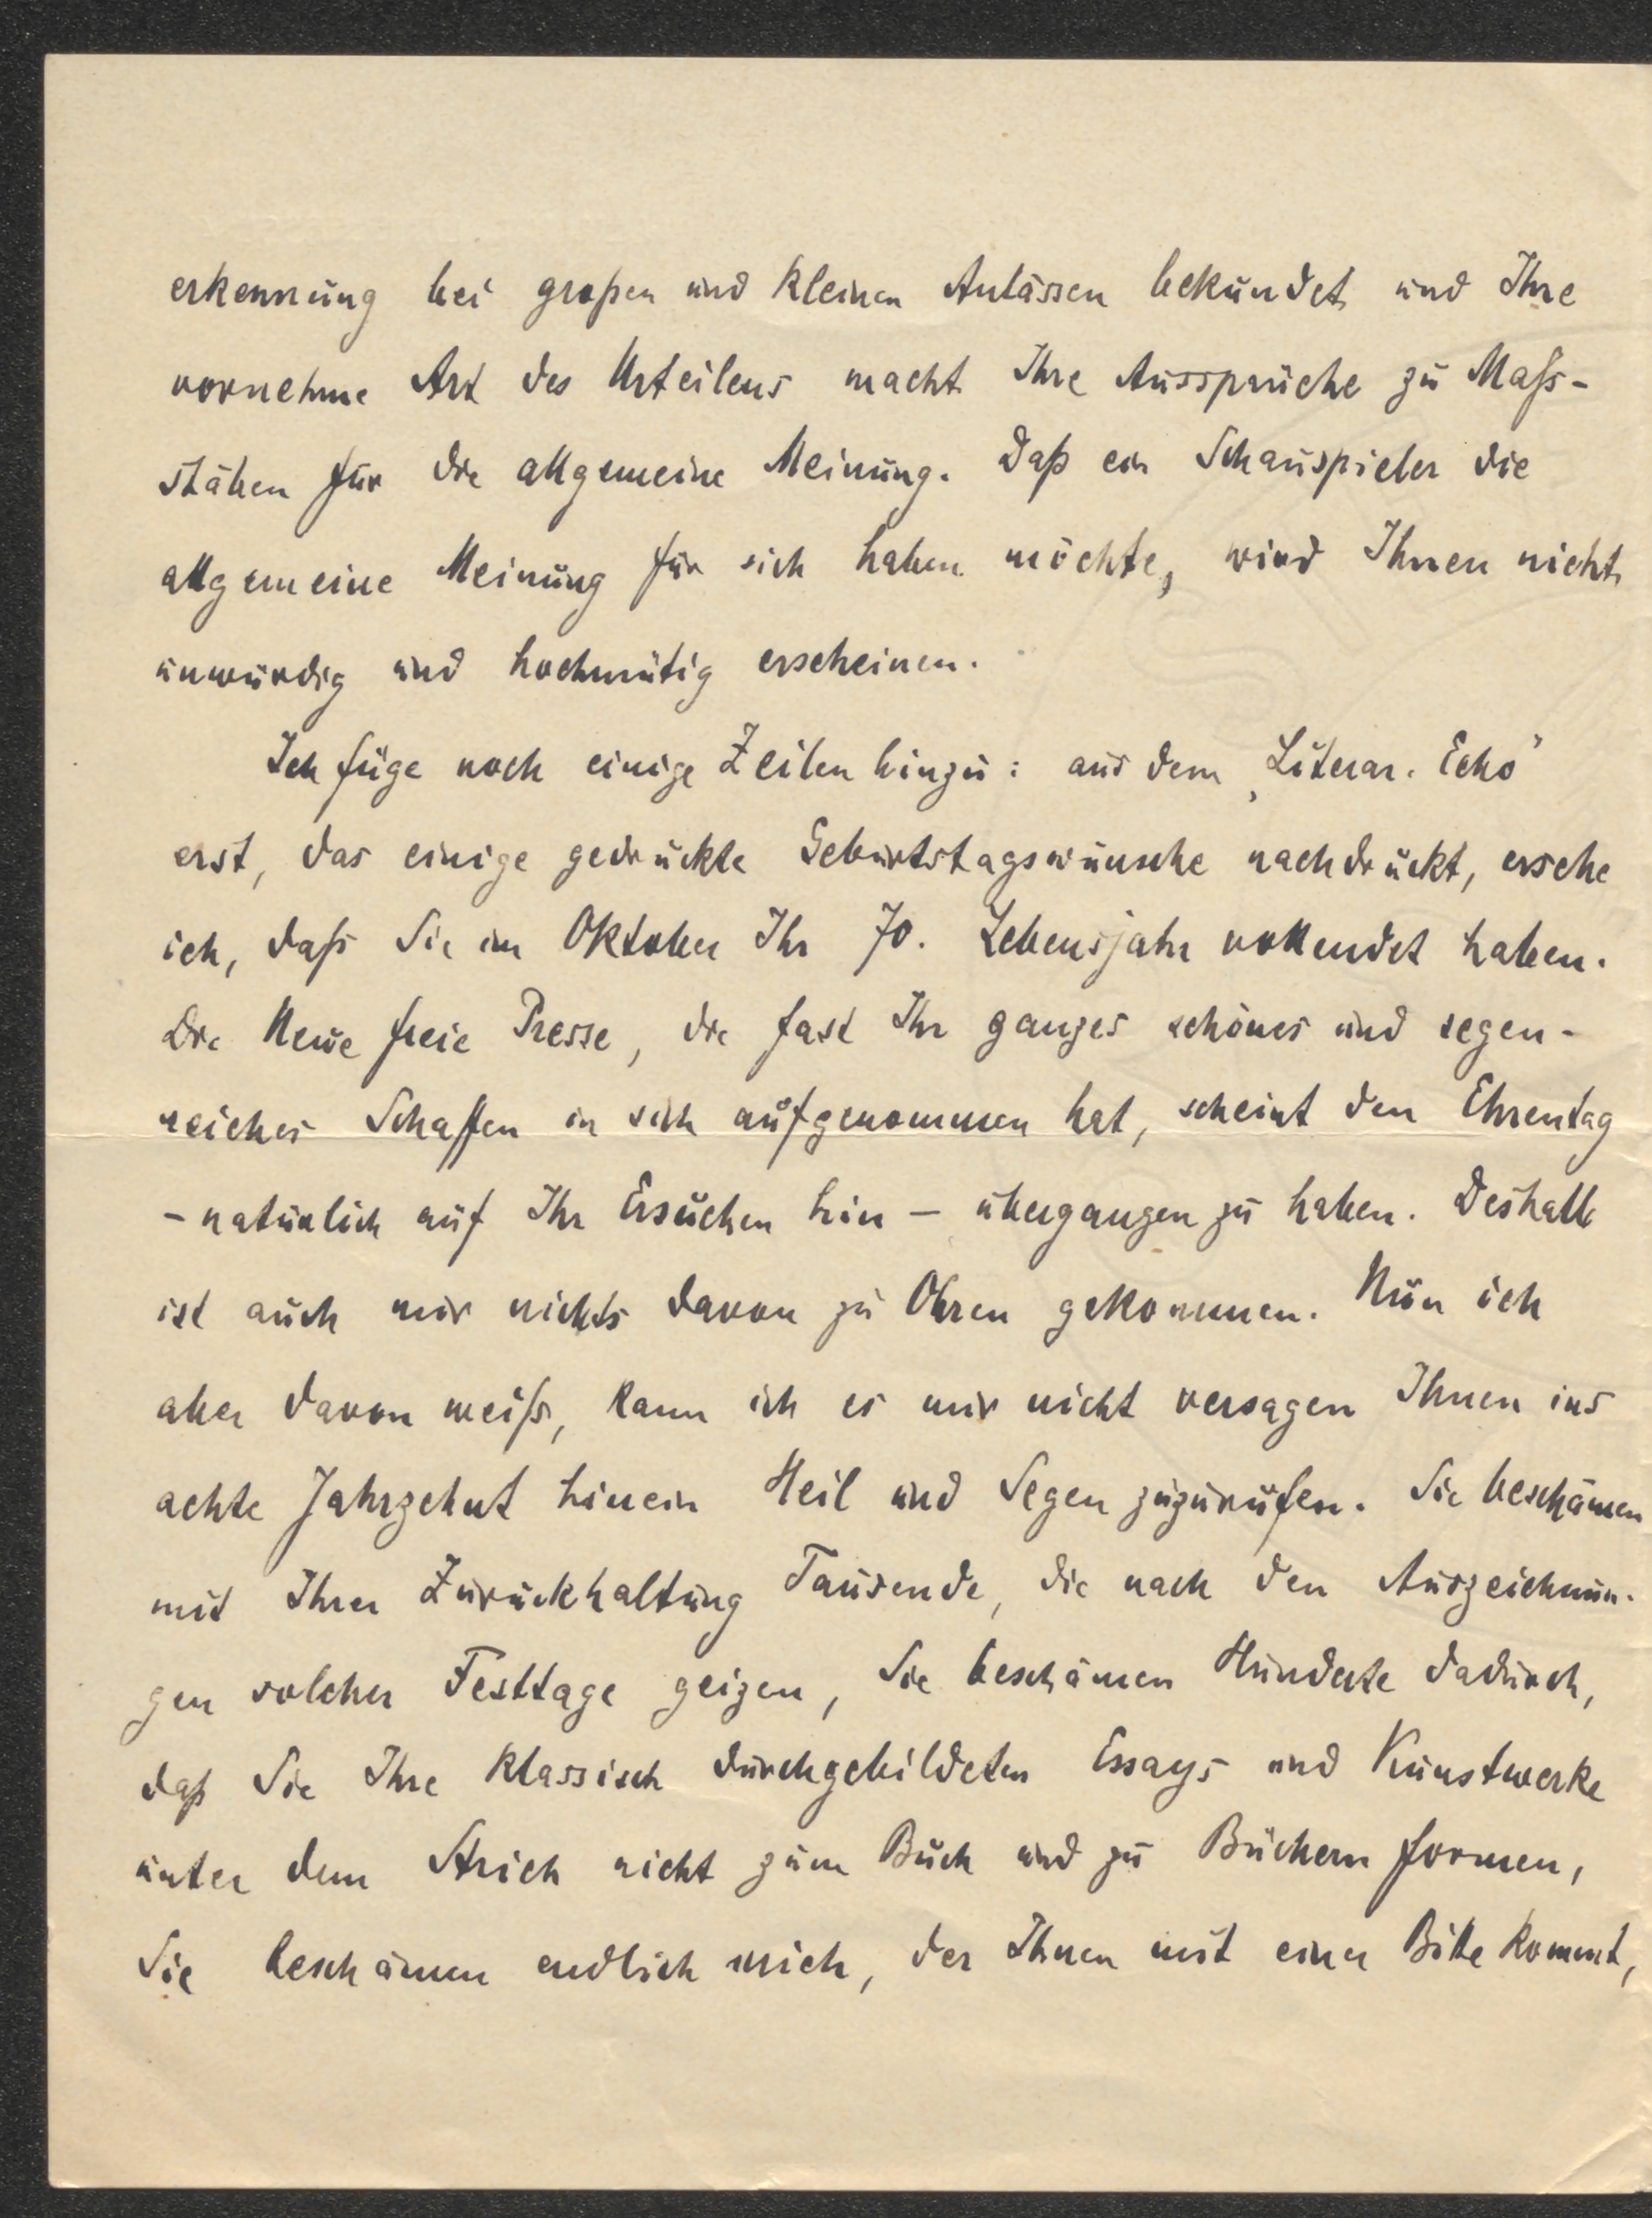 erkennung bei großen und kleinen Anlässen bekundet und Ihre
vornehme Art des Urteilens macht Ihre Aussprüche zu Mass-
stäben für die allgemeine Meinung. Daß ein Schauspieler die
allgemeine Meinung für sich haben möchte, wird Ihnen nicht
unwürdig und hochmütig erscheinen.
Ich füge noch einige Zeilen hinzu: aus dem „Literar. Echo"
erst, das einige gedruckte Geburtstagswünsche nachdruckt, ersehe
ich, dass Sie im Oktober Ihr 70. Lebensjahr vollendet haben.
Die Neue freie Presse, die fast Ihr ganzes schönes und segen-
reiches Schaffen in sich aufgenommen hat, scheint den Ehrentag
- natürlich auf Ihr Ersuchen hin - übergangen zu haben. Deshalb
ist auch mir nichts davon zu Ohren gekommen. Nun ich
aber davon weiss, kann ich es mir nicht versagen Ihnen ins
achte Jahrzehnt hinein Heil und Segen zuzurufen. Sie beschämen
mit Ihrer Zurückhaltung Tausende, die nach den Auszeichnun-
gen solcher Festtage geizen, Sie beschämen Hunderte dadurch,
daß Sie Ihre klassisch durchgebildeten Essays und Kunstwerke
unter dem Strich nicht zum Buch und zu Büchern formen,
Sie beschämen endlich mich, der Ihnen mit einer Bitte kommt,